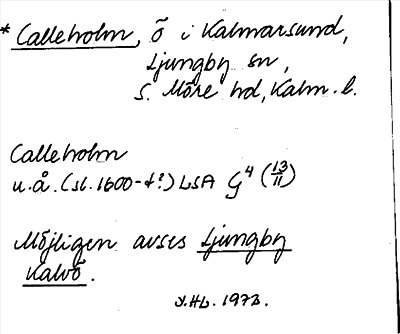 * Calleholm, ö i Kalmarsund,
Ljungby sn,
S. Möre hd, Kalm. l.
Calleholm
u.å. (sl. 1600-t?) LSA G⁴ (13/11)
Möjligen avses Ljungby
Kalvö.
1973.